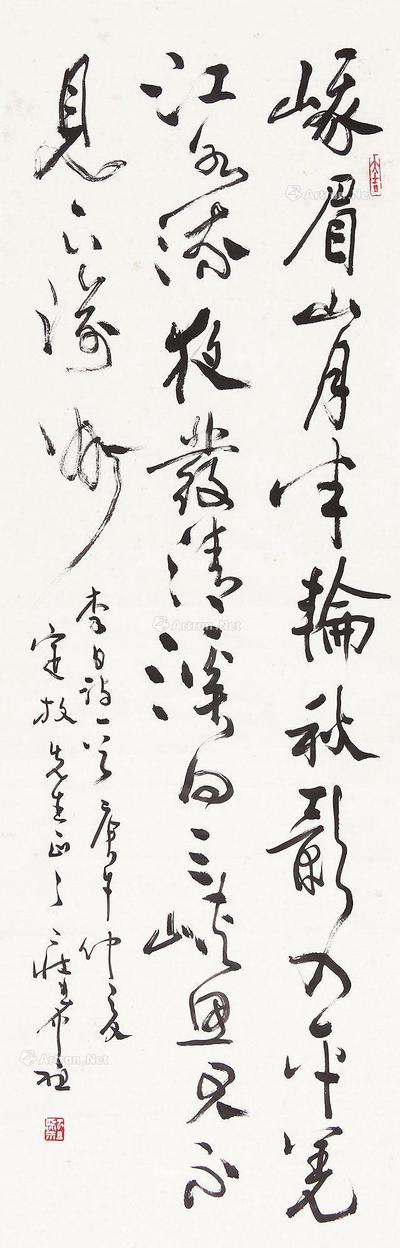 峨眉山月半輪秋影入平羌
江水流夜發清溪向三峽思君不
見下渝州
李白詩一首庚午仲夏
先生正之莊希祖
大吉
Artron.Net
Artron.Net
Artron.Net